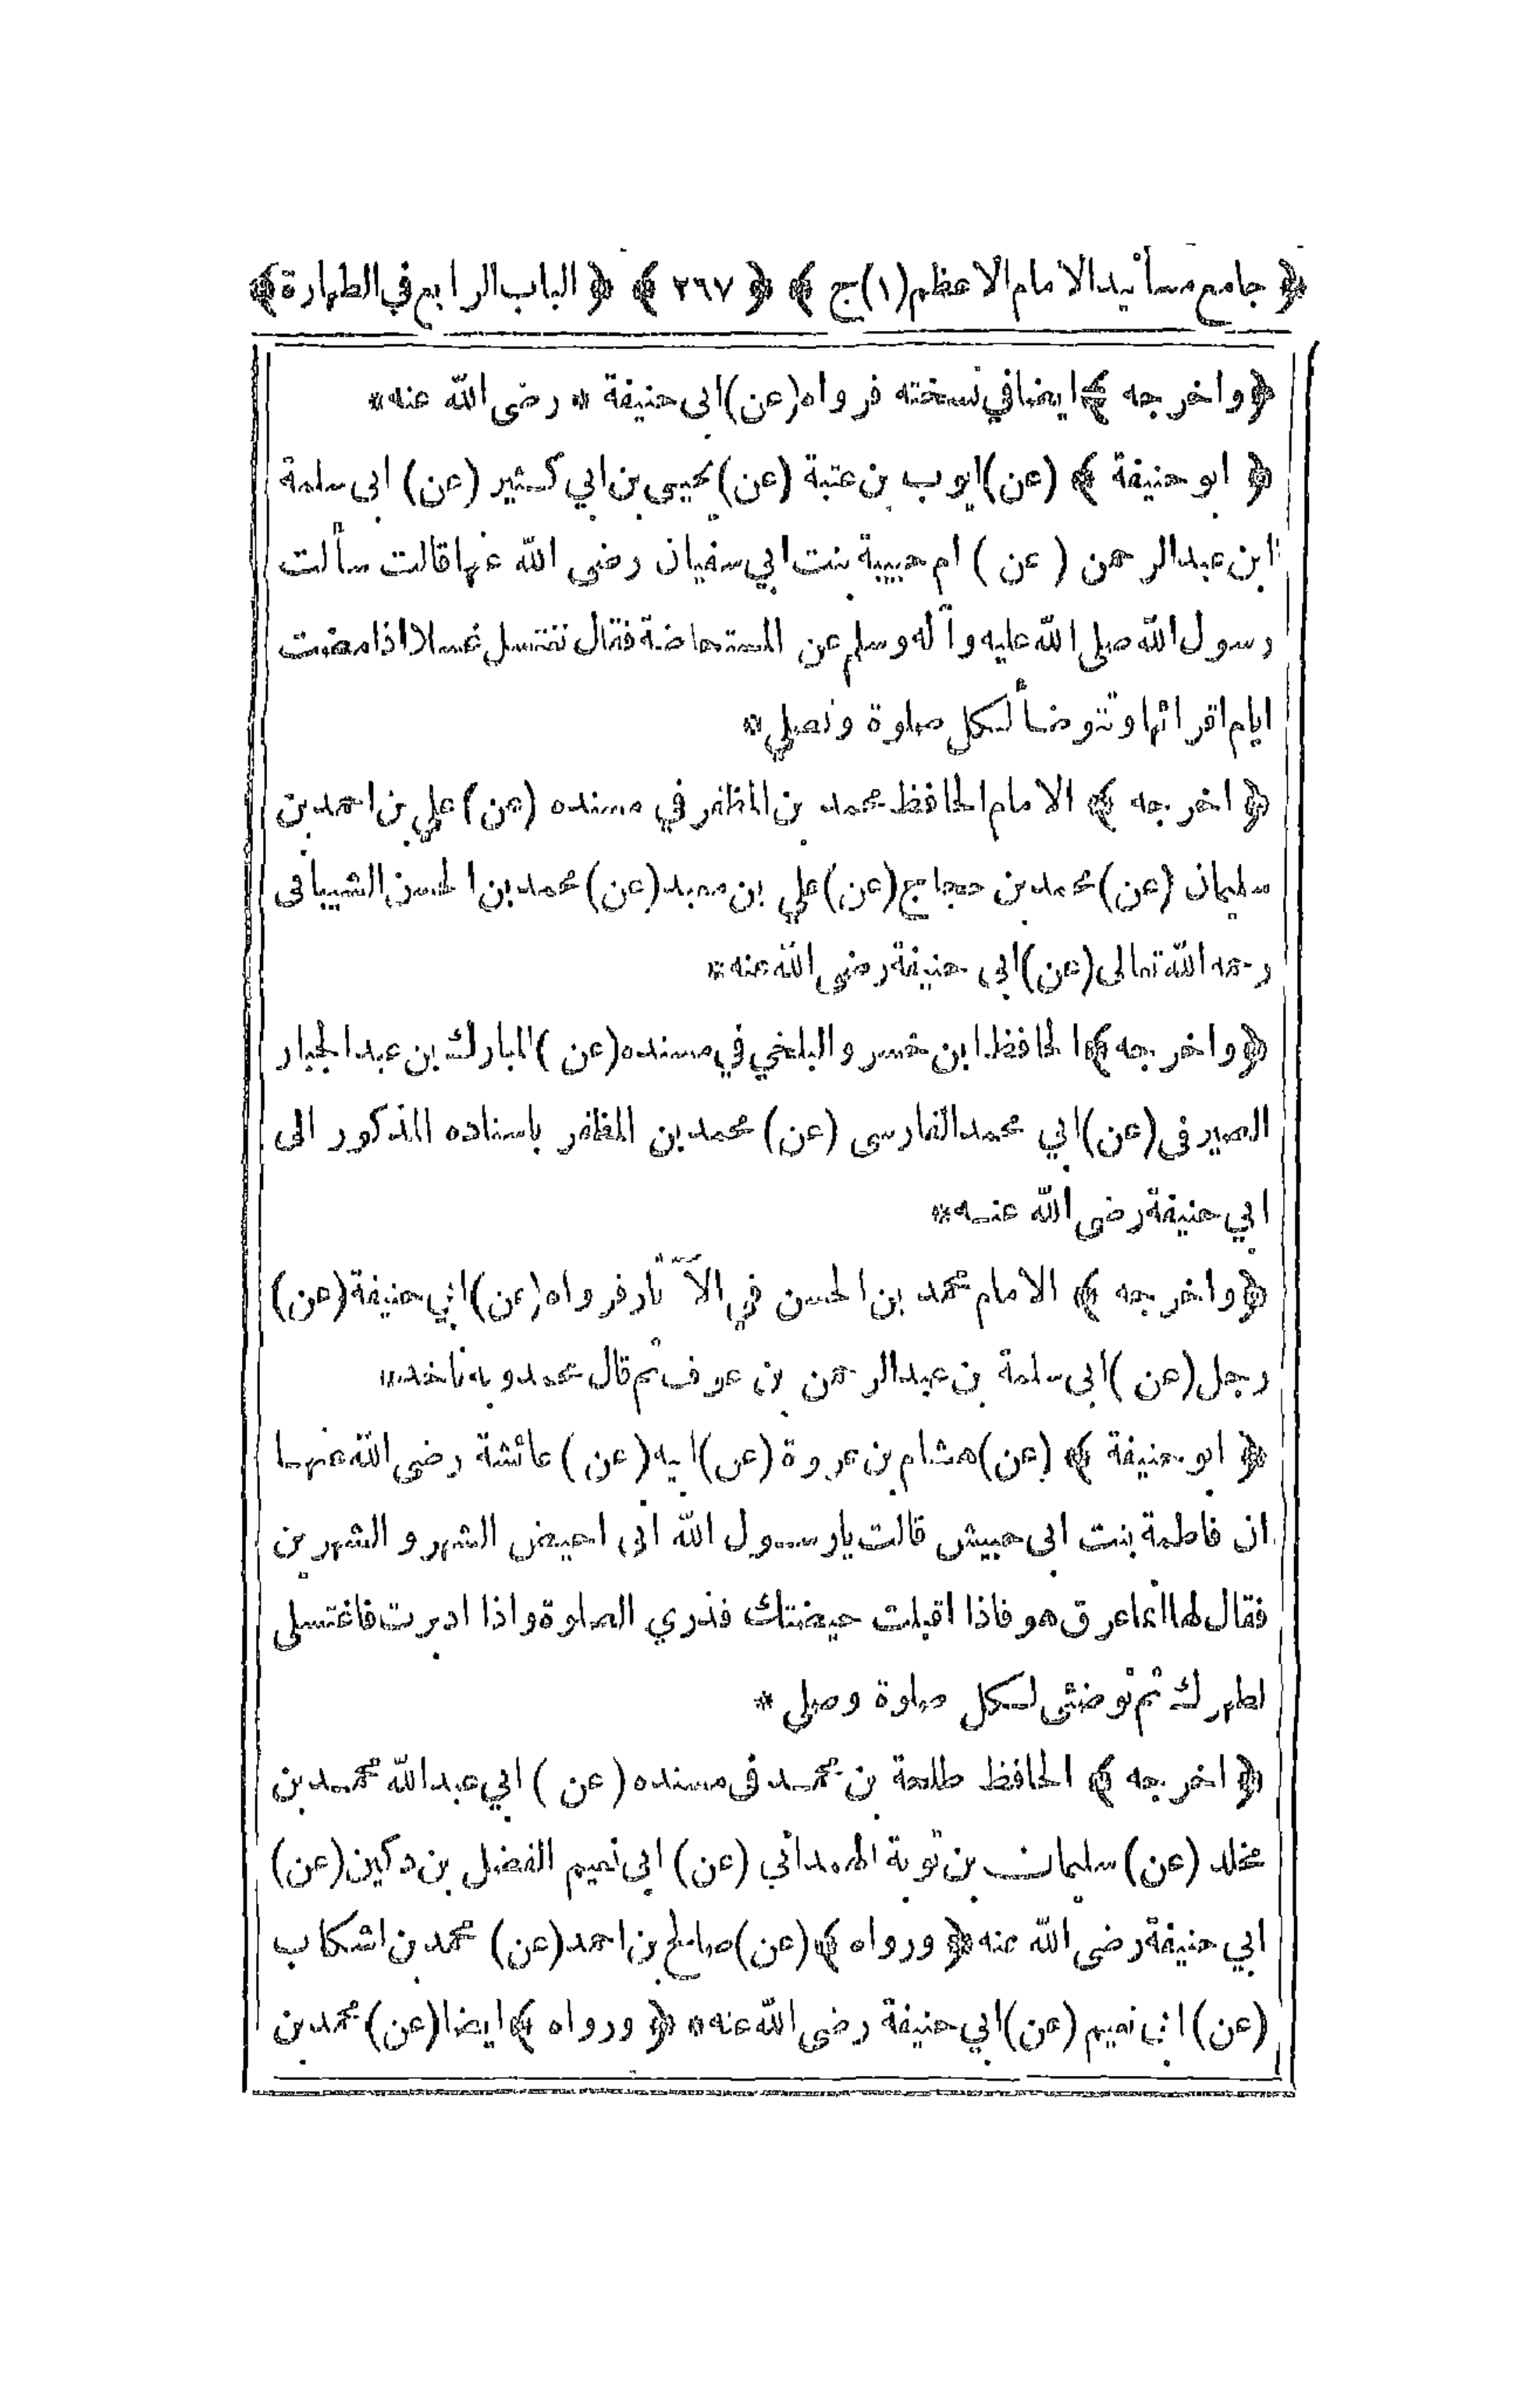 ﴿ جامع مسانيد الامام الاعظم (١) ج ﴾ ﴿ ٢٦٧ ﴾ ﴿ الباب الرابع في الطهارة ﴾
﴿ واخرجه ﴾ ايضا في نسخته فرواه (عن) ابى حنيفة * رضى الله عنه *
﴿ ابو حنيفة ﴾ (عن) ايوب بن عتبة (عن) يحيى بن ابي كثير (عن) ابى سلمة
ابن عبد الرحمن (عن) ام حبيبة بنت ابي سفيان رضى الله عنها قالت سألت
رسول الله صلى الله عليه وآله وسلم عن المستحاضة فقال تغتسل غسلا اذا مضت
ايام اقرائها وتتوضأ لكل صلوة وتصلي *
﴿ اخرجه ﴾ الامام الحافظ محمد بن المظفر في مسنده (عن) علي بن احمد بن
سليمان (عن) محمد بن حجاج (عن) علي بن معبد (عن) محمد بن الحسن الشيبانى
رحمه الله تعالى (عن) ابى حنيفة رضى الله عنه *
﴿ واخرجه ﴾ الحافظ ابن خسرو البلخي في مسنده (عن) المبارك بن عبد الجبار
الصيرفى (عن) ابي محمد الفارسى (عن) محمد بن المظفر باسناده المذكور الى
ابي حنيفة رضى الله عنه *
﴿ واخرجه ﴾ الامام محمد بن الحسن في الآثار فرواه (عن) ابي حنيفة (عن)
رجل (عن) ابى سلمة بن عبد الرحمن بن عوف ثم قال محمد وبه ناخذ *
﴿ ابو حنيفة ﴾ (عن) هشام بن عروة (عن) ابيه (عن) عائشة رضى الله عنها
ان فاطمة بنت ابى حبيش قالت يا رسول الله انى احيض الشهر و الشهرين
فقال لها انما عرق هو فاذا اقبلت حيضتك فذري الصلوة واذا ادبرت فاغتسلى
لطهرك ثم توضئى لكل صلوة وصلي *
﴿ اخرجه ﴾ الحافظ طلحة بن محمد فى مسنده (عن) ابي عبد الله محمد بن
مخلد (عن) سليمان بن توبة الهمداني (عن) ابى نعيم الفضل بن دكين (عن)
ابي حنيفة رضى الله عنه ﴿ ورواه ﴾ (عن) صالح بن احمد (عن) محمد بن اشكاب
(عن) ابى نعيم (عن) ابي حنيفة رضى الله عنه * ﴿ ورواه ﴾ ايضا (عن) محمد بن